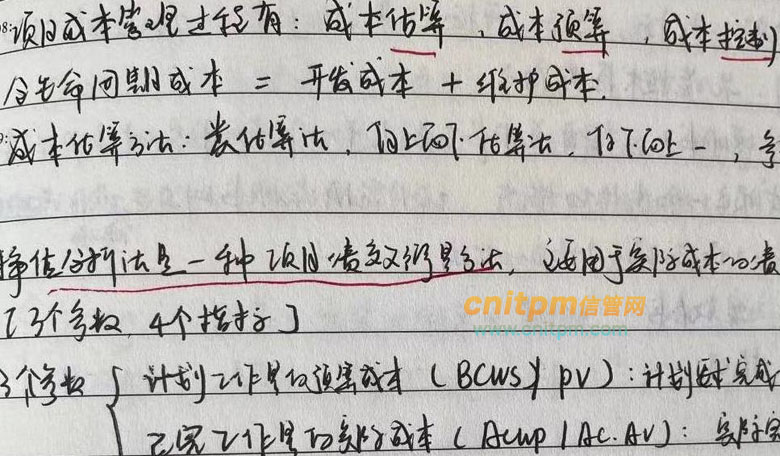 项目成本管理过程有：成本估算，成本预算，成本控制
全生命周期成本 = 开发成本 + 维护成本.
成本估算方法：类估算法，自上而下估算法，自下而上一，参
挣值分析法是一种项目绩效衡量方法，适用于实际成本的绩
[3个参数，4个指标]
3个参数 { 计划工作量的预算成本 (BCWS / PV)：计划要完成
已完工作量的实际成本 (ACWP / AC.AV)：实际完
cnitpm信管网
www.cnitpm.com